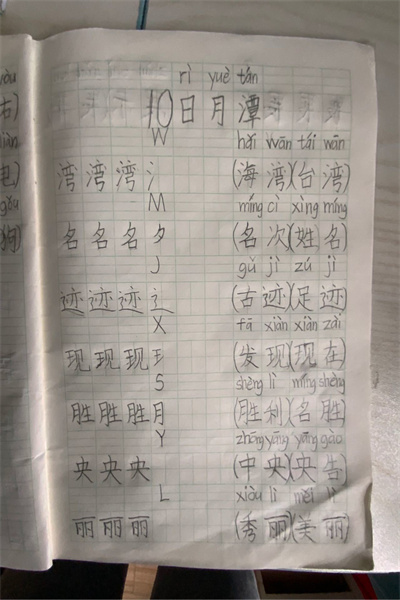 rì yuè tán
10日月潭
W hǎi wān tái wān
湾湾湾氵(海湾)(台湾)
M míng cì xìng míng
名名名夕(名次)(姓名)
J gǔ jì zú jì
迹迹迹辶(古迹)(足迹)
X fā xiàn xiàn zài
现现现王(发现)(现在)
S shèng lì míng shèng
胜胜胜月(胜利)(名胜)
Y zhōng yāng yāng gào
央央央(中央)(央告)
L xiòu lì měi lì
丽丽丽(秀丽)(美丽)